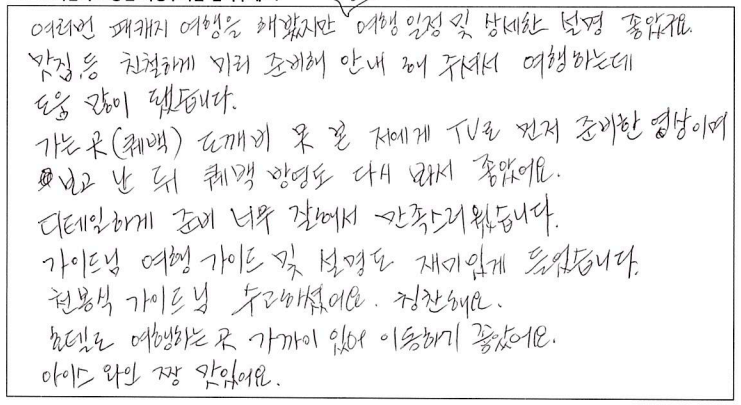 여러번 패캐지 여행을 해봤지만 여행 일정 및 상세한 설명 좋았구요.
맛집 등 친절하게 미리 준비해 안내 해 주셔서 여행하는데
도움 많이 됐습니다.
가는 곳(퀘백) 도깨비 못 본 저에게 TV로 먼저 준비한 영상이며
보고 난 뒤 퀘백 방영도 다시 봐서 좋았어요.
디테일하게 준비 너무 잘해서 만족스러웠습니다.
가이드님 여행 가이드 및 설명도 재미있게 들었습니다.
천봉식 가이드님 수고하셨어요. 칭찬해요.
호텔도 여행하는 곳 가까이 있어 이동하기 좋았어요.
아이스 와인 짱 맛있어요.